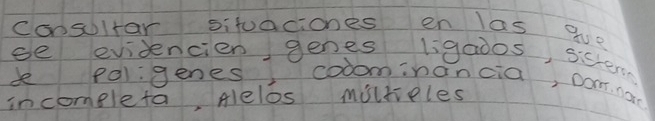 consultar situaciones en las que
se evidencien, genes ligados, sistema
de poligenes, codominancia, Dominanc
incompleta, Alelos múltiples